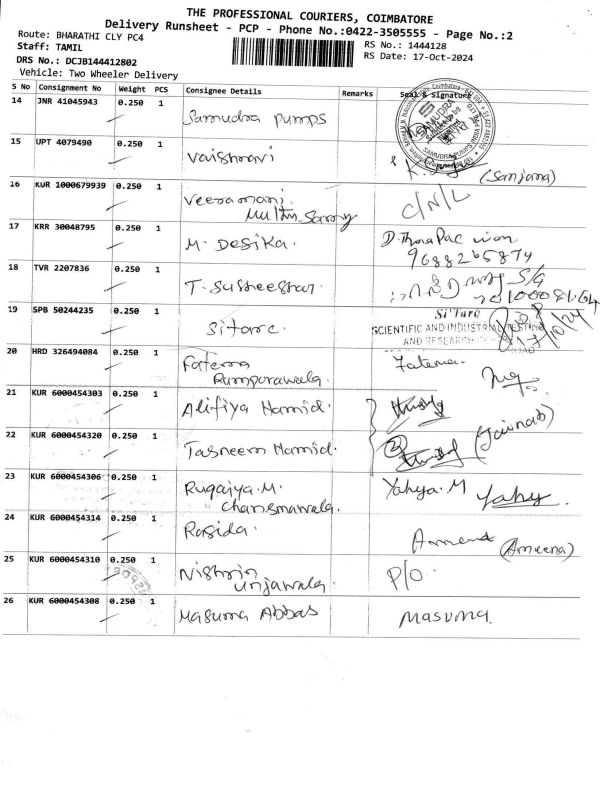 THE PROFESSIONAL COURIERS, COIMBATORE
Delivery Runsheet - PCP - Phone No.:0422-3505555 - Page No.:2
Route: BHARATHI CLY PC4
RS No.: 1444128
Staff: TAMIL
RS Date: 17-Oct-2024
DRS No.: DCJB144412802
Vehicle: Two Wheeler Delivery
S No Consignment No Weight PCS Consignee Details Remarks Seal & Signature
14 JNR 41045943 0.250 1 Samudra Pumps
15 UPT 4079490 0.250 1 Vaishnavi (Sanjana)
16 KUR 1000679939 0.250 1 Veeramani C/N/L
17 KRR 30048795 0.250 1 M. Desika.
9688265874
18 TVR 2207836 0.250 1 S/G
19 SPB 50244235 0.250 1 Sitarc. Si'Tarc
SCIENTIFIC AND INDUSTRIAL TESTING
AND RESEARCH
20 HRD 326494084 0.250 1 Fatema Fatema.
Rampurawala.
21 KUR 6000454303 0.250 1 Alifiya Hamid.
22 KUR 6000454320 0.250 1 Tasneem Hamid. (Zainab)
23 KUR 6000454306 0.250 1 Ruqaiya.M. Yahya.M
24 KUR 6000454314 0.250 1 Rasida. (Ameena)
25 KUR 6000454310 0.250 1 Nishrin P/O.
Unjawala.
26 KUR 6000454308 0.250 1 Masuma Abbas Masuma.